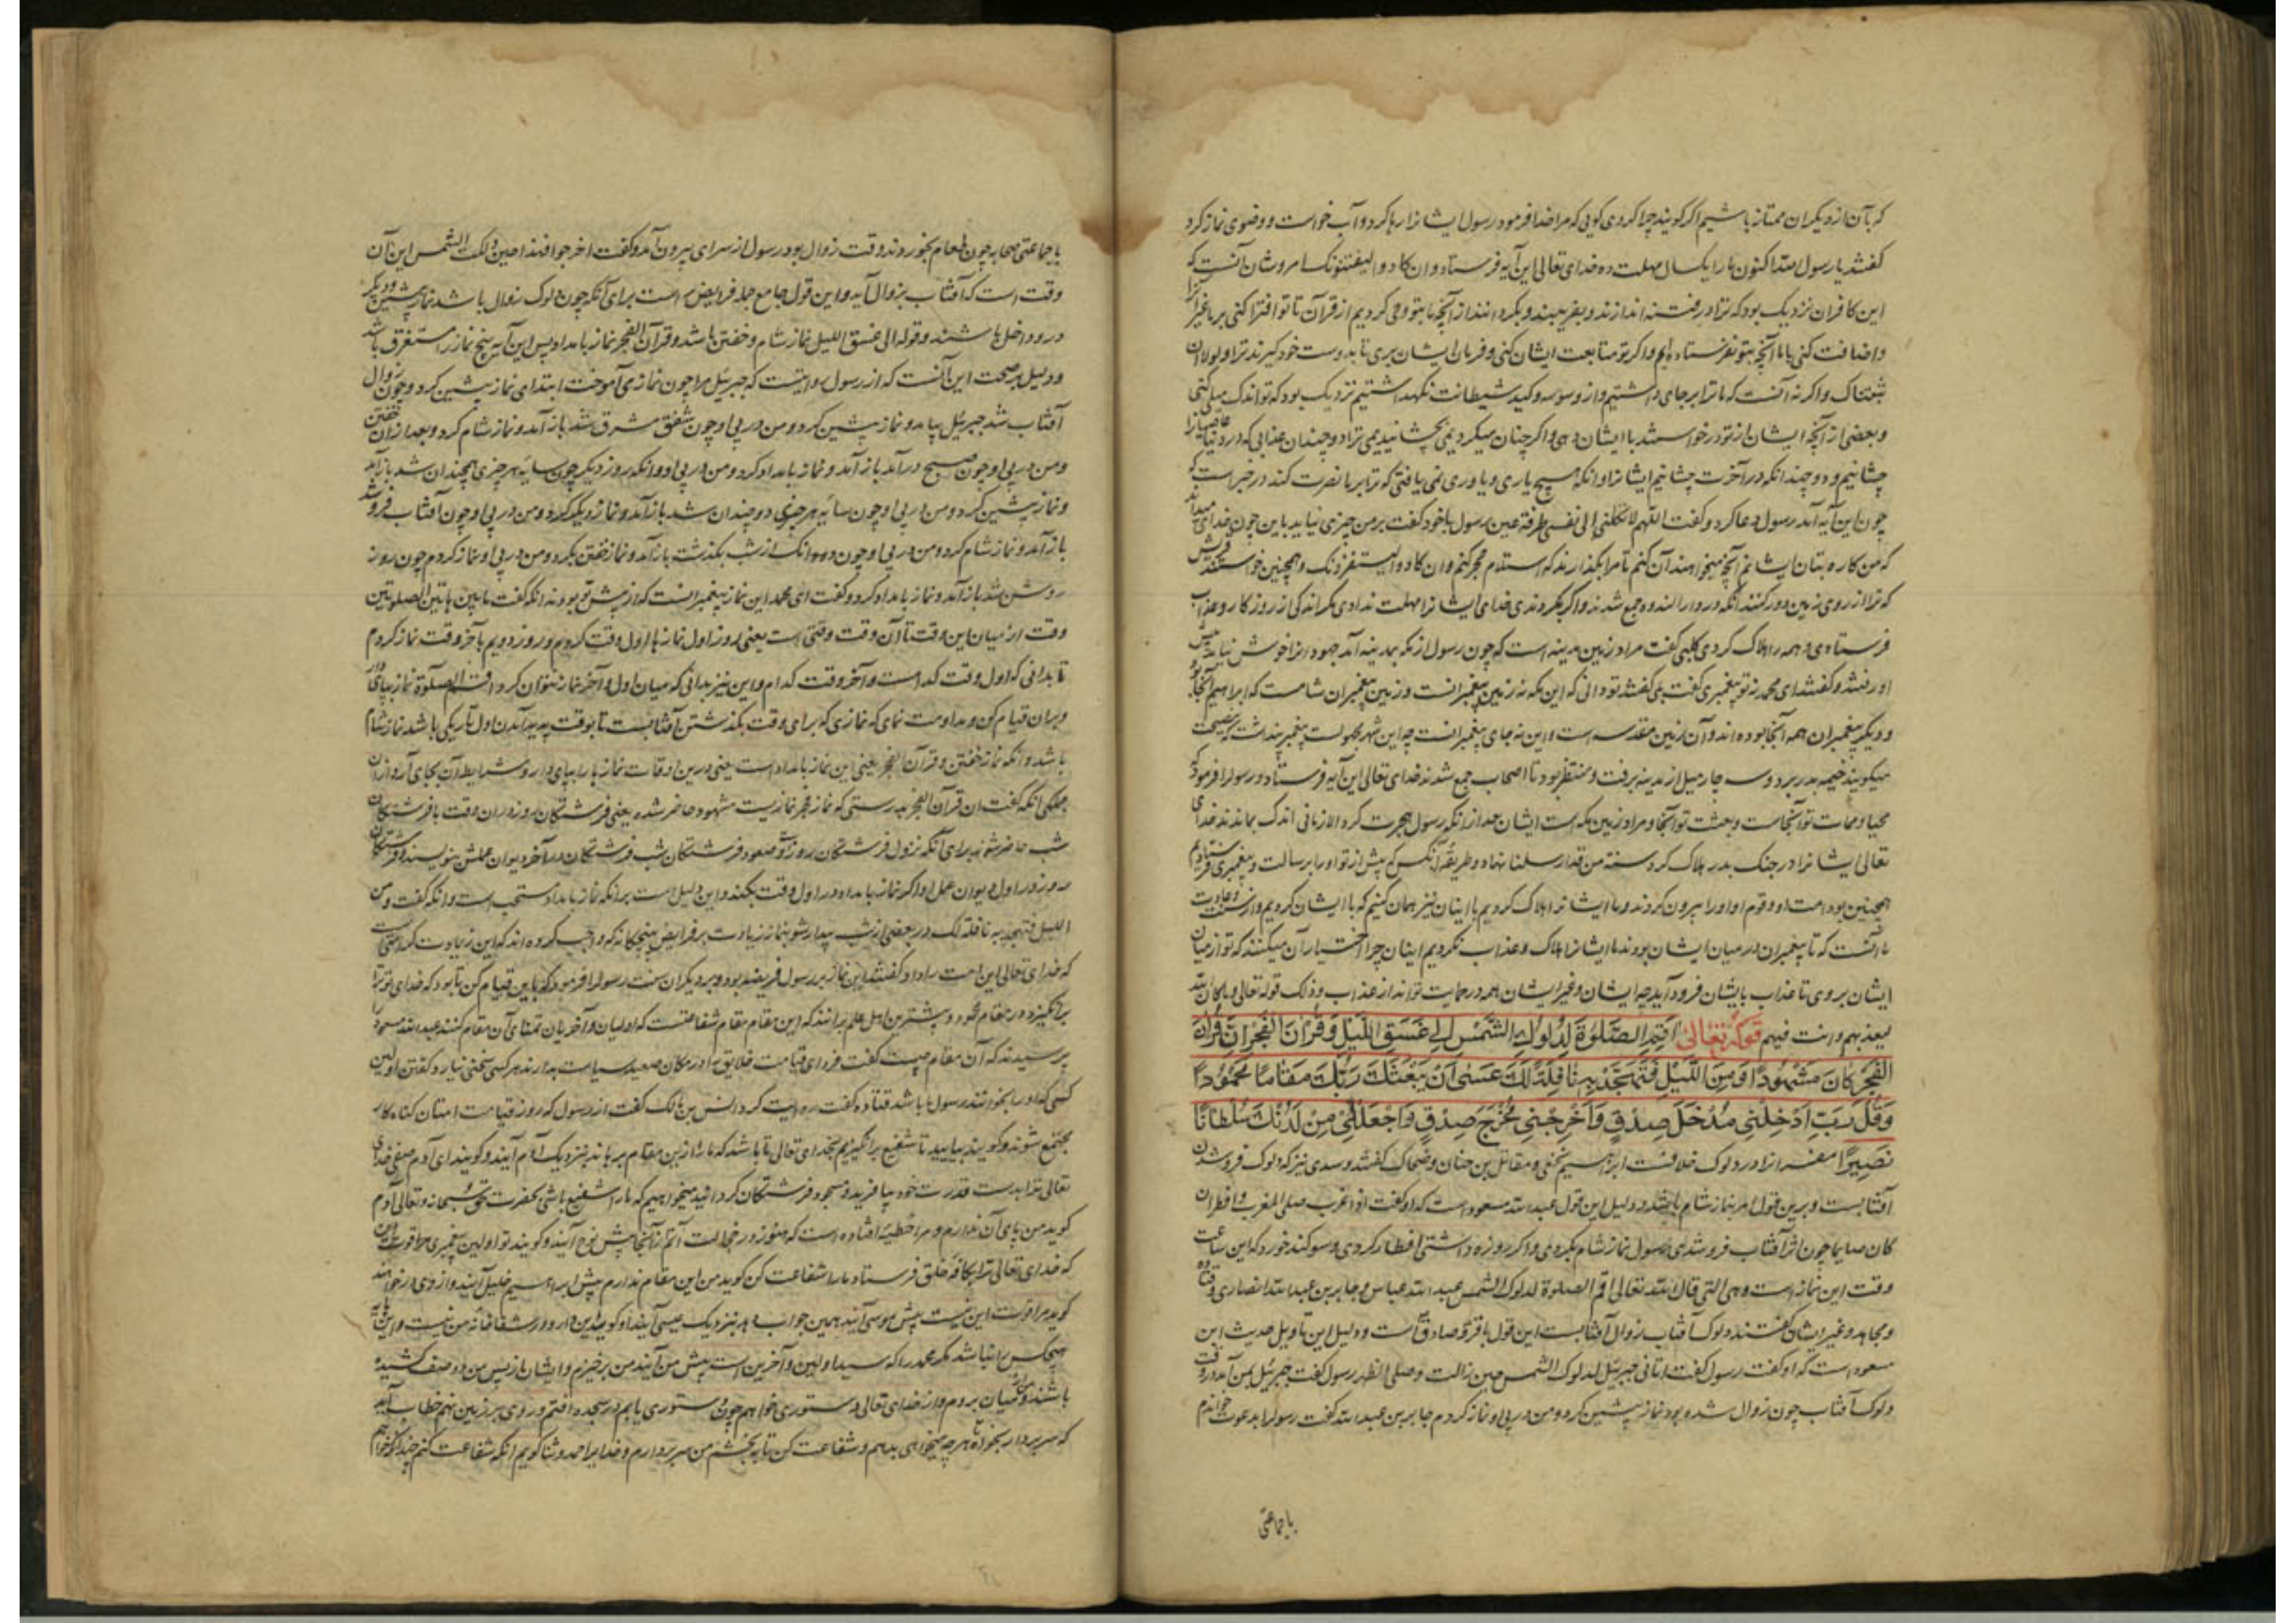 که بآن از دیگران ممتاز باشیم اگر گویند چرا کردی گویی که مرا خدا فرمود رسول ایشانرا رها کرد و آب خواست و وضوی نماز کرد
گفتند یا رسول الله اکنون ما را یکسال مهلت ده خدای تعالی این آیه فرستاد و ان کادوا لیفتنونک امر و شان آنست که
این کافران نزدیک بود که ترا در فتنه اندازند و بفریبند و بگردانند از آنچه ما بتو وحی کردیم از قرآن تا تو افترا کنی بر ما غیر آنرا
و اضافت کنی با ما آنچه بتو نفرستاده ایم و اگر تو متابعت ایشان کنی و فرمان ایشان بری تا بدوست خود گیرند ترا و لولا ان
ثبتناک و اگر نه آنست که ما ترا بر جای داشتیم و از وسوسه و کید شیطانت نگهداشتیم نزدیک بود که تو اندک میلی کنی
و بعضی از آنچه ایشان از تو درخواستند با ایشان دهی و اگر چنان میکردیمی بچشانیدیمی ترا دو چندان عذابی که در دنیا
چشانیم و دو چندانکه در آخرت چشانیم ایشانرا و آنکه هیچ یاری و یاوری نمی یافتی که ترا بر ما نصرت کند در خبر است که
چون این آیه آمد رسول دعا کرد و گفت اللهم لا تکلنی الی نفسی طرفة عین رسول با خود گفت بر من چیزی نیاید باین چون خدای میداند
که من کاره بتان ایشانم آنچه میخواهند آن کنم تا مرا بگذارند که استلام حجر کنم و ان کادوا لیستفزونک و همچنین خواستند قریش
که ترا از روی زمین دور کنند آنگه در دار الندوه جمع شدند و اگر بکردندی خدای ایشانرا مهلت ندادی مگر اندکی از روزگار و عذاب
فرستادی و همه را هلاک کردی کلبی گفت مراد زمین مدینه است که چون رسول از مکه بمدینه آمد جهودانرا خوش نیامد پیش
او رفتند و گفتند ای محمد نه تو پیغمبری گفت بلی گفتند تو دانی که این مکه نه زمین پیغمبرانست و زمین پیغمبران شامست که ابراهیم آنجا بود
و دیگر پیغمبران همه آنجا بوده اند و آن زمین مقدسه است و این نه جای پیغمبرانست چه این شهر مجهولست پیغمبر پنداشت که نصیحت
میگویند خیمه بدر برد و سه چار میل از مدینه برفت و منتظر بود تا اصحاب جمع شدند خدای تعالی این آیه فرستاد و رسولرا فرمود که
محیا و ممات تو آنجاست و بعثت تو آنجا و مراد زمین مکه است ایشان بعد از آنکه رسول هجرت کرد الا زمانی اندک بماندند خدای
تعالی ایشانرا در جنگ بدر هلاک کرد سنة من قد ارسلنا نهاد و طریقه آنکس که پیش از تو او را برسالت و پیغمبری فرستادیم
همچنین بود امت او و قوم او او را بیرون کردند و ما ایشانرا هلاک کردیم با اینان نیز همان کنیم که با ایشان کردیم و از سنت و عادت
ما آنست که تا پیغمبران در میان ایشان بودند ما ایشانرا هلاک و عذاب نکردیم اینان چرا اختیار آن میکنند که تو از میان
ایشان بروی تا عذاب بایشان فرود آید چه ایشان و غیر ایشان همه در حمایت تواند از عذاب و ذلک قوله تعالی و ما کان الله
لیعذبهم و انت فیهم قوله تعالی اقم الصلوة لدلوک الشمس الی غسق اللیل و قرآن الفجر ان قرآن
الفجر کان مشهودا و من اللیل فتهجد به نافلة لک عسی ان یبعثک ربک مقاما محمودا
و قل رب ادخلنی مدخل صدق و اخرجنی مخرج صدق و اجعل لی من لدنک سلطانا
نصیرا مفسرانرا در دلوک خلافست ابراهیم نخعی و مقاتل بن حیان و ضحاک گفتند و سدی نیز که دلوک فرو شدن
آفتابست و برین قول امر بنماز شام باشد و دلیل این قول عبدالله مسعود است که او گفت اذا غرب صلی المغرب و افطر ان
کان صایما چون اثر آفتاب فرو شدی رسول نماز شام بکردی و اگر روزه داشتی افطار کردی و سوگند خورد که این ساعت
وقت این نماز است و هی التی قال الله تعالی اقم الصلوة لدلوک الشمس عبدالله عباس و جابر بن عبدالله انصاری و قتاده
و مجاهد و غیر ایشان گفتند دلوک آفتاب زوال آفتابست این قول باقر و صادقست و دلیل این تاویل حدیث ابن
مسعود است که او گفت رسول گفت اتانی جبرئیل لدلوک الشمس حین زالت و صلی الظهر رسول گفت جبرئیل بمن آمد در وقت
دلوک آفتاب چون زوال شده بود نماز پیشین کرد و من در پی او نماز کردم جابر بن عبدالله گفت رسولرا بدعوت خواندم
با جماعتی
با جماعتی صحابه چون طعام بخوردند وقت زوال بود رسول از سرای بیرون آمد و گفت اخرجوا فهذا حین دلکت الشمس این آن
وقت است که آفتاب بزوال آید و این قول جامع جمله فرایض است برای آنکه چون دلوک زوال باشد نماز پیشین و دیگر
درو داخل باشند و قوله الی غسق اللیل نماز شام و خفتن باشد و قرآن الفجر نماز بامداد پس این آیه پنج نماز را مستغرق باشد
و دلیل بر صحت این آنست که از رسول روایتست که جبرئیل مرا چون نماز می آموخت ابتدا می نماز پیشین کرد و چون زوال
آفتاب شد جبرئیل بیامد و نماز پیشین کرد و من در پی او چون شفق مشرق شد باز آمد و نماز شام کرد و بعد از آن خفتن
و من در پی او چون صبح درآمد باز آمد و نماز بامداد کرد و من در پی او و آنگه روز دیگر چون سایه هر چیزی همچندان شد باز آمد
و نماز پیشین کرد و من در پی او چون سایه هر چیزی دو چندان شد باز آمد و نماز دیگر کرد و من در پی او چون آفتاب فرو شد
باز آمد و نماز شام کرد و من در پی او چون دو دانگ از شب بگذشت باز آمد و نماز خفتن بکرد و من در پی او نماز کردم چون روز
روشن شد باز آمد و نماز بامداد کرد و گفت ای محمد این نماز پیغمبرانست که از پیش تو بودند آنگه گفت ما بین هاتین الصلوتین
وقت از میان این وقت تا آن وقت وقتی است یعنی روز اول نمازها اول وقت کردیم و روز دویم بآخر وقت نماز کردم
تا بدانی که اول وقت کدامست و آخر وقت کدام و این نیز بدانی که میان اول و آخر نماز بتوان کرد اقم الصلوة نماز بپای دار
و بر آن قیام کن و مداومت نمای که نمازی که برای وقت بگذشتن آفتابست تا بوقت پدید آمدن اول تاریکی باشد نماز شام
باشد و آنگه نماز خفتن و قرآن الفجر یعنی این نماز بامداد است یعنی درین اوقات نماز را بپای دار و شرایط آن بجای آر و ارکان
جملگی آنگه گفت ان قرآن الفجر بدرستی که نماز فجر نمازیست مشهود حاضر شده یعنی فرشتگان روز در آن وقت با فرشتگان
شب حاضر شوند برای آنکه نزول فرشتگان روز و صعود فرشتگان شب فرشتگان در آخر دیوان عملش بنویسند و فرشتگان
روز در اول دیوان عمل او اگر نماز بامداد در اول وقت بکند و این دلیل است بر آنکه نماز بامداد مستحب است و آنگه گفت و من
اللیل فتهجد به نافلة لک در بعضی از شب بیدار شو بنماز زیادت بر فرایض پنجگانه که واجب کرده اند که این زیادت کرامتی است
که خدای تعالی این امت را داد و گفتند این نماز بر رسول فریضه بود و بر دیگران سنت رسولرا فرمود که باین قیام کن تا بود که خدای تو ترا
برانگیزد در مقام محمود و بیشترین اهل علم برآنند که این مقام مقام شفاعتست که اولیان و آخریان تمنای آن مقام کنند عبدالله مسعود را
پرسیدند که آن مقام چیست گفت فردای قیامت خلایق را در مکان صعید سیاست بدارند هر کسی سخنی نیارد گفتن اولین
کسی که او را بخوانند رسول ما باشد قتاده گفت روایت کرد انس بن مالک گفت از رسول که روز قیامت امتان گناه کار
مجتمع شوند و گویند بیایید تا شفیع برانگیزیم بخدای تعالی تا باشد که ما را ازین مقام برهاند بنزدیک آدم آیند و گویند ای آدم صفی خدای
تعالی ترا بدست قدرت خود بیافرید و مسجود فرشتگان گردانید میخواهیم که ما را شفیع باشی بحضرت حق سبحانه و تعالی آدم
گوید من پای آن ندارم و مرا خطیئه افتاده است که هنوز در خجالت آنم از آنجا پیش نوح آیند و گویند تو اولین پیغمبری
که خدای تعالی ترا بکافه خلق فرستاد ما را شفاعت کن گوید من این مقام ندارم پیش ابراهیم خلیل آیند و از وی درخواهند
گوید مرا قوت این نیست پیش موسی آیند همین جواب دهد بنزدیک عیسی آیند او گوید این دارو در شفاخانه من نیست و این
هیچکس را نباشد مگر محمد را که سید اولین و آخرین است پیش من آیند من برخیزم و ایشان باز پس من دو صف کشیده
باشند و من از میان بروم و از خدای تعالی دستوری خواهم چون دستوری یابم در سجده افتم و روی بر زمین نهم خطاب آید
که سر بردار بخواه تا هر چه میخواهی بدهم و شفاعت کن تا ببخشم من سر بردارم و خدا یرا حمد و ثنا گویم آنگه شفاعت کنم چندانکه خواهم